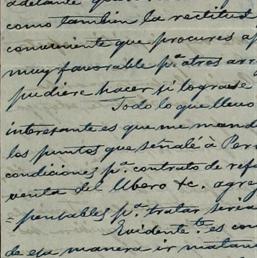 adelante
como tambien la rectitud
conveniente que procures
muy favorable pª. otros
pudiere hacer si lograse
Todo lo que llevo
interesante es que me mand
los puntos que señalé à
condiciones pª. contrato de ref
venta del Ubero &c. agreg
=pensables pª. tratar
Evidente.te es
de esa manera ir matan